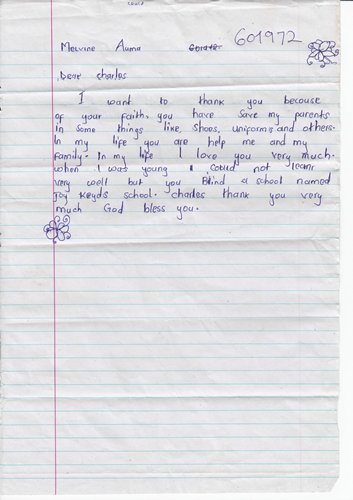 Melvine Auma 601972
Dear Charles
I want to thank you becouse
of your faith. you have save my parents
in some things like, shoes, uniforms and others.
In my life you are help me and my
family. In my life I love you very much.
when I was young I could not learn
very well but you Blind a school named
Joy school. charles thank you very
much God bless you.